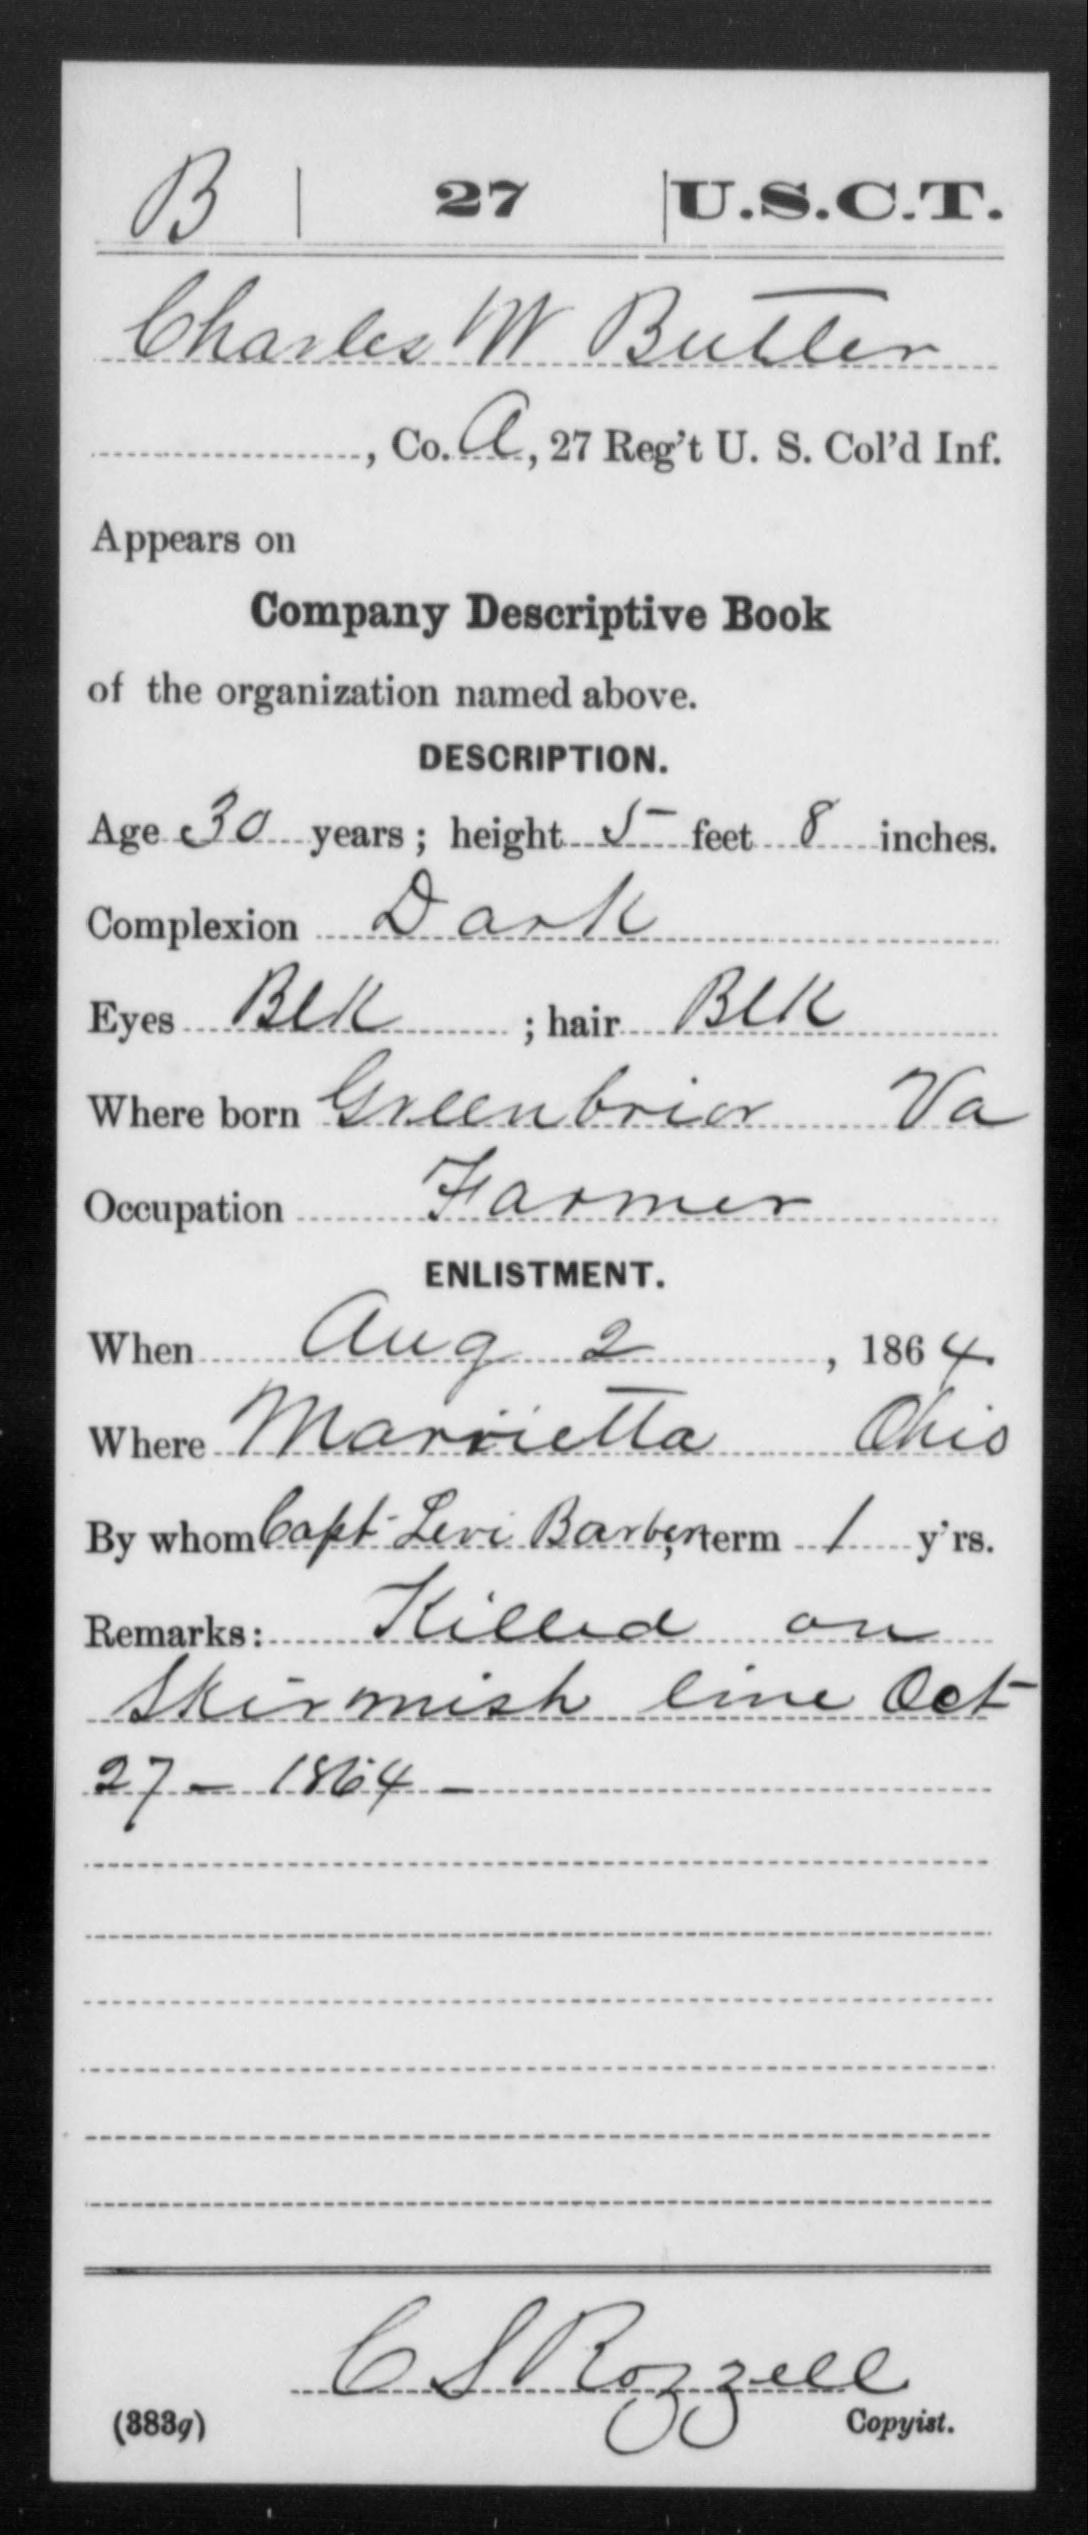 B | 27 | U.S.C.T.
Charles W Butler
, Co. A, 27 Reg't U. S. Col'd Inf.
Appears on
Company Descriptive Book
of the organization named above.
DESCRIPTION.
Age 30 years; height 5 feet 8 inches.
Complexion Dark
Eyes Blk ; hair Blk
Where born Greenbrior Va
Occupation Farmer
ENLISTMENT.
When Aug 2 , 1864.
Where Marrietta Ohio
By whom Capt Levi Barber; term 1 y'rs.
Remarks: Killed on
Skirmish line Oct
27 - 1864 -
C S Rozzell
(383g) Copyist.